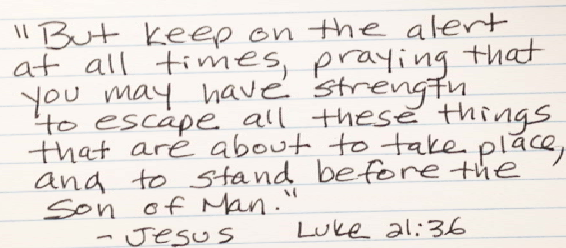 "But keep on the alert
at all times, praying that
you may have strength
to escape all these things
that are about to take place,
and to stand before the
Son of Man."
- Jesus Luke 21:36